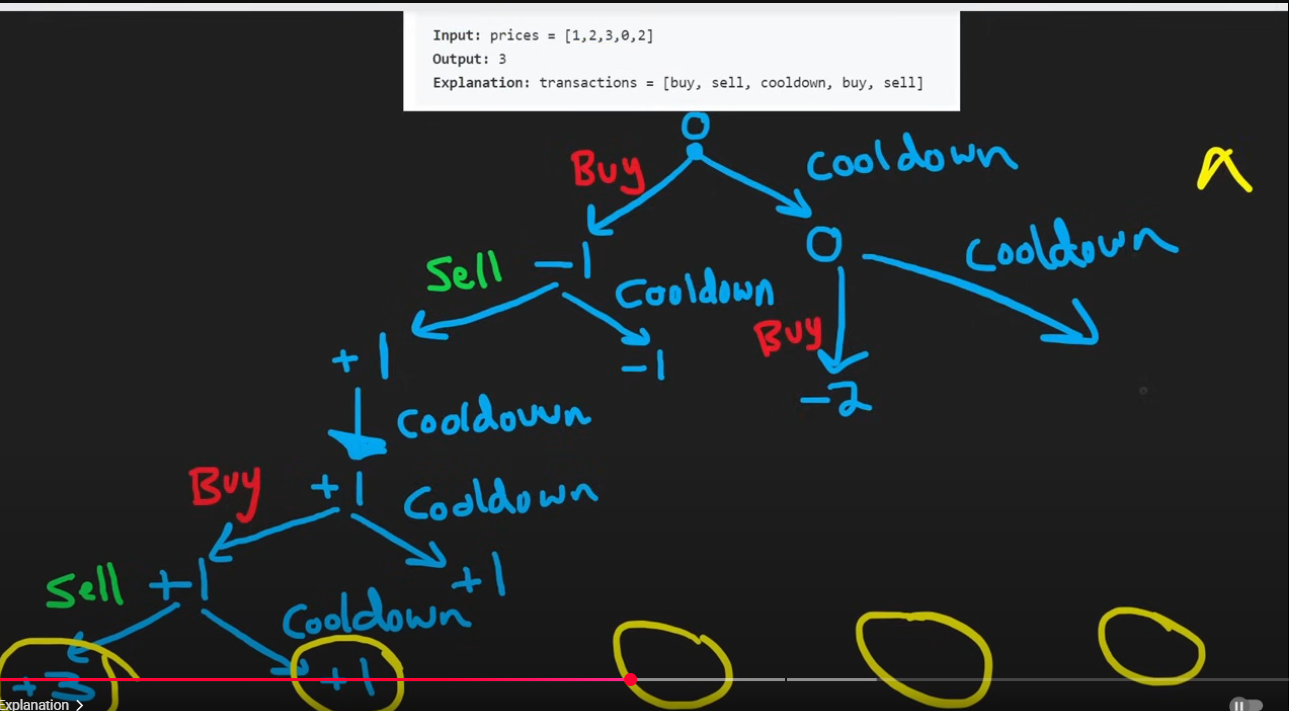 Input: prices = [1,2,3,0,2]
Output: 3
Explanation: transactions = [buy, sell, cooldown, buy, sell]
0
Buy
Cooldown
Sell
-1
Cooldown
0
Cooldown
+1
-1
Buy
-2
Cooldown
Buy
+1
Cooldown
Sell
+1
Cooldown
+1
+3
+1
Explanation >